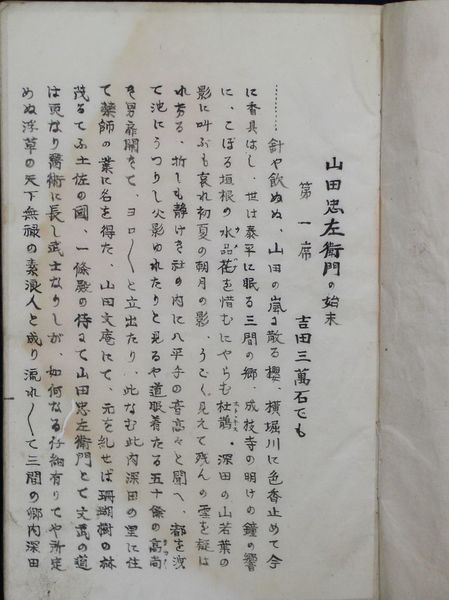 山田忠左衛門の始末
第一席
吉田三萬石でも
………針や飲ぬぬ、山田の嵐に散る櫻、横堀川に色香止めて今
に香具はし、世は泰平に眠る三間の郷、成枝寺の明けの鐘の響
に、こぼる垣根の水晶花を惜むにやらむ杜鵑、深田の山若葉の
影に叫ぶも哀れ初夏の朝月の影、うすく見えて残んの雪を疑は
れ劣る、折しも静けき社の内に八平手の音高々と聞へ、都を洩
て池にうつりし火影ゆれたりと見るや道服着たる五十余の高尚
き男扉開きて、ヨロ〱と立出たり、此なむ此内深田の里に住
て藥師の業に名を得た、山田文庵にて、元を糺せば珊瑚樹の林
茂るてふ土佐の國、一條殿の侍にて山田忠左衛門とて文武の道
は更なり醫術に長し武士なりしが、如何なる仔細有りてや所定
めぬ浮草の天下無禄の素浪人と成り流れ〱て三間の郷内深田